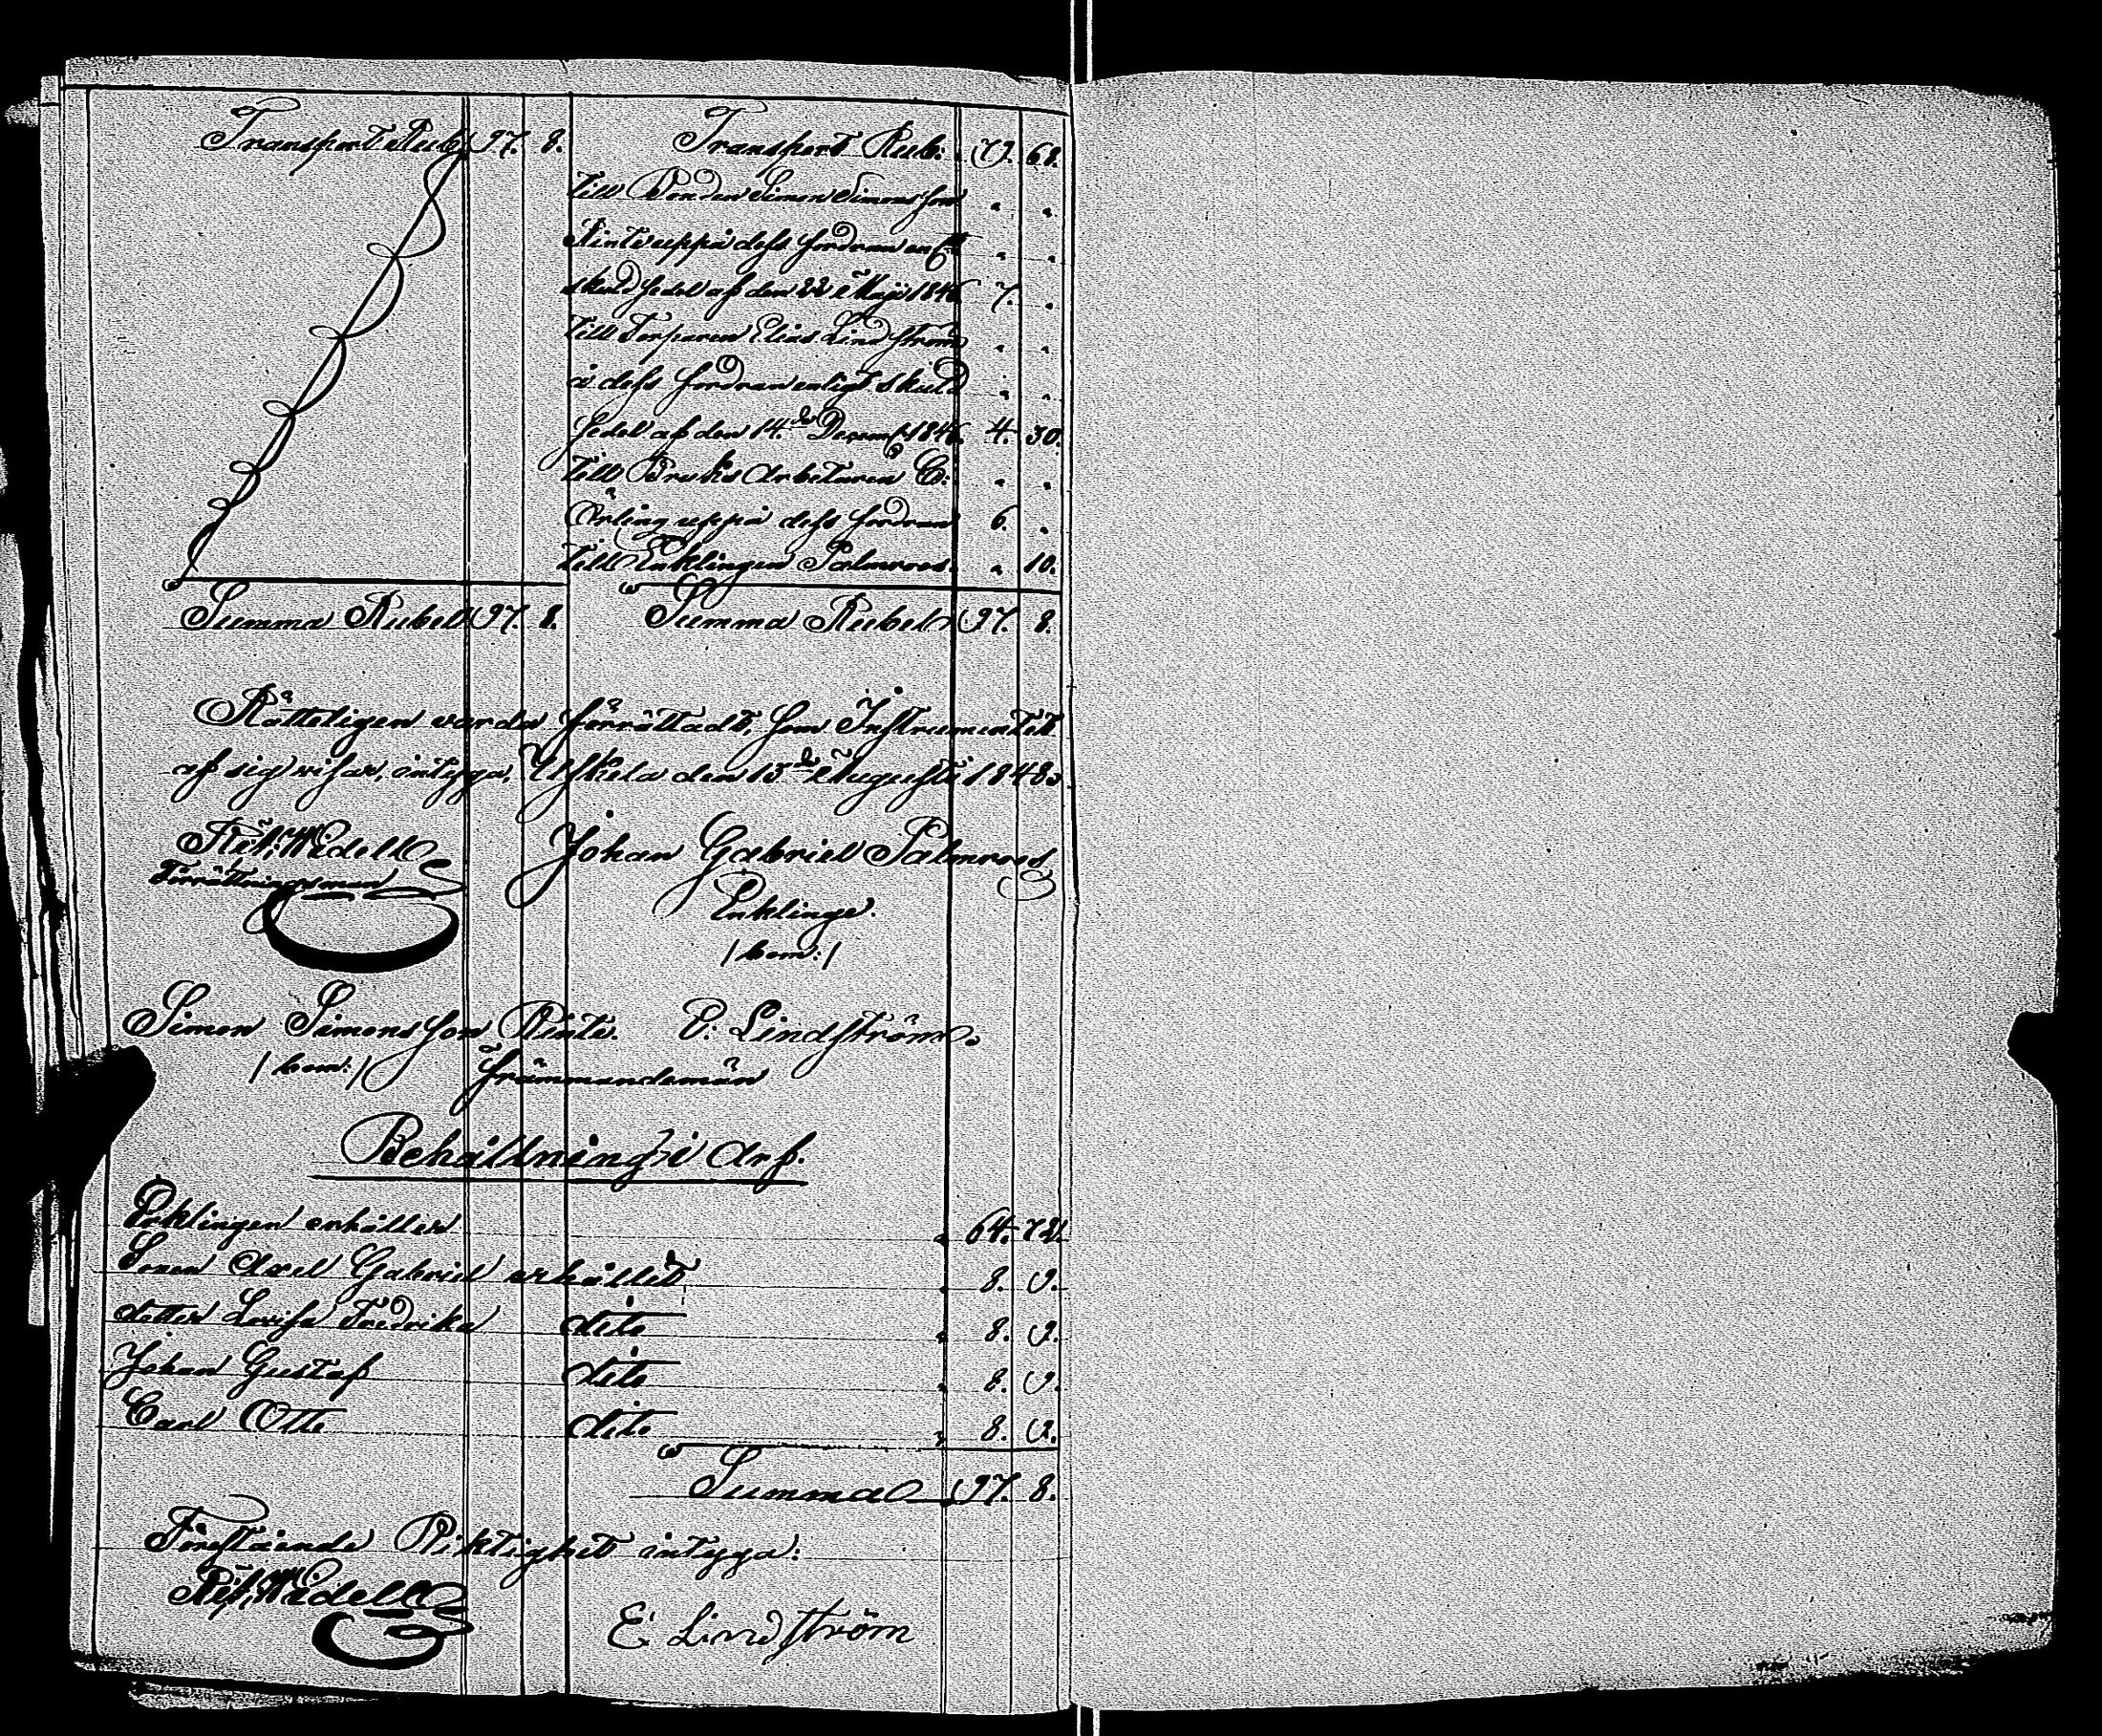 Transport Rub. 97. 8.
Transport Rub: 79. 68.
till Bonden Simon Simonsson
Pinti uppå dess fordran en
skuldsedel af den 22 Maji 1846 7. "
till Torparen Elias Lindström
å dess fordran enligt skuld
sedel af den 14.de Decemb. 1846. 4. 30.
till Bruks Arbetaren C:
Örling uppå dess fordran 6. "
till Enklingen Palmroos. " 10.
Summa Rubel 97. 8.
Summa Rubel 97. 8.
Rätteligen varda förrättadt, som Instrumentet
af sig visar, intyga, Uskela den 15de Augusti 1848.
Wedell
Förrättningsman
Johan Gabriel Palmroos
Enklinge.
/bom:/
Simon Simonsson Pinti. E: Lindström.
/bom:/ främmandemän
Behållning i Arf.
Enklingen erhåller 64. 72.
Sonen Axel Gabriel erhåller 8. 9.
dotter Lovisa Fredrika dito 8. 9.
Johan Gustaf dito 8. 9.
Carl Otto dito 8. 9.
Summa 97. 8.
Förestående Riktighet intyga:
Wedell
E Lindström